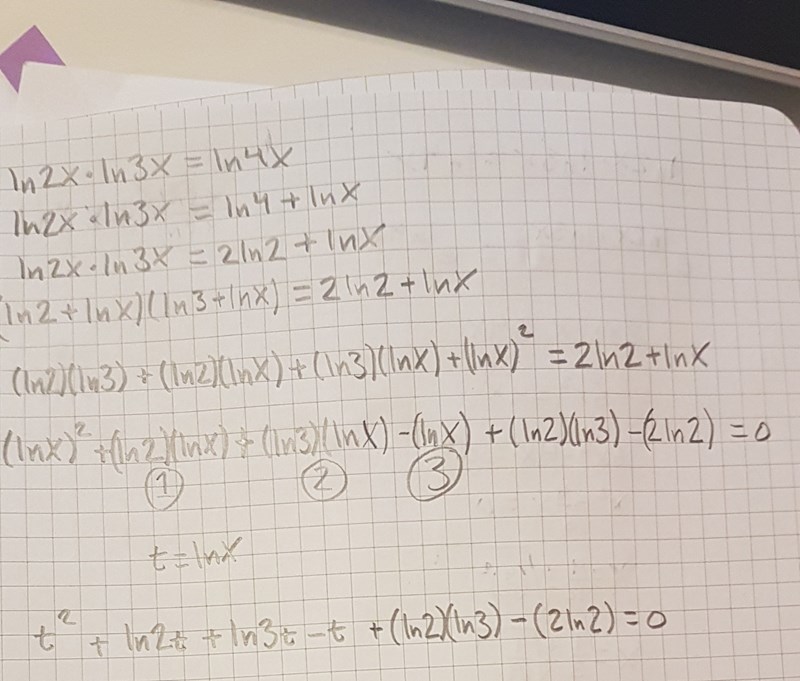 ln2x·ln3x = ln4x
ln2x·ln3x = ln4 + lnx
ln2x·ln3x = 2ln2 + lnx
(ln2 + lnx)(ln3+lnx) = 2ln2+lnx
(ln2)(ln3) + (ln2)(lnx) + (ln3)(lnx) + (lnx)² = 2ln2+lnx
(lnx)² + (ln2)(lnx) + (ln3)(lnx) - (lnx) + (ln2)(ln3) - (2ln2) = 0
① ② ③
t = lnx
t² + ln2t + ln3t - t + (ln2)(ln3) - (2ln2) = 0